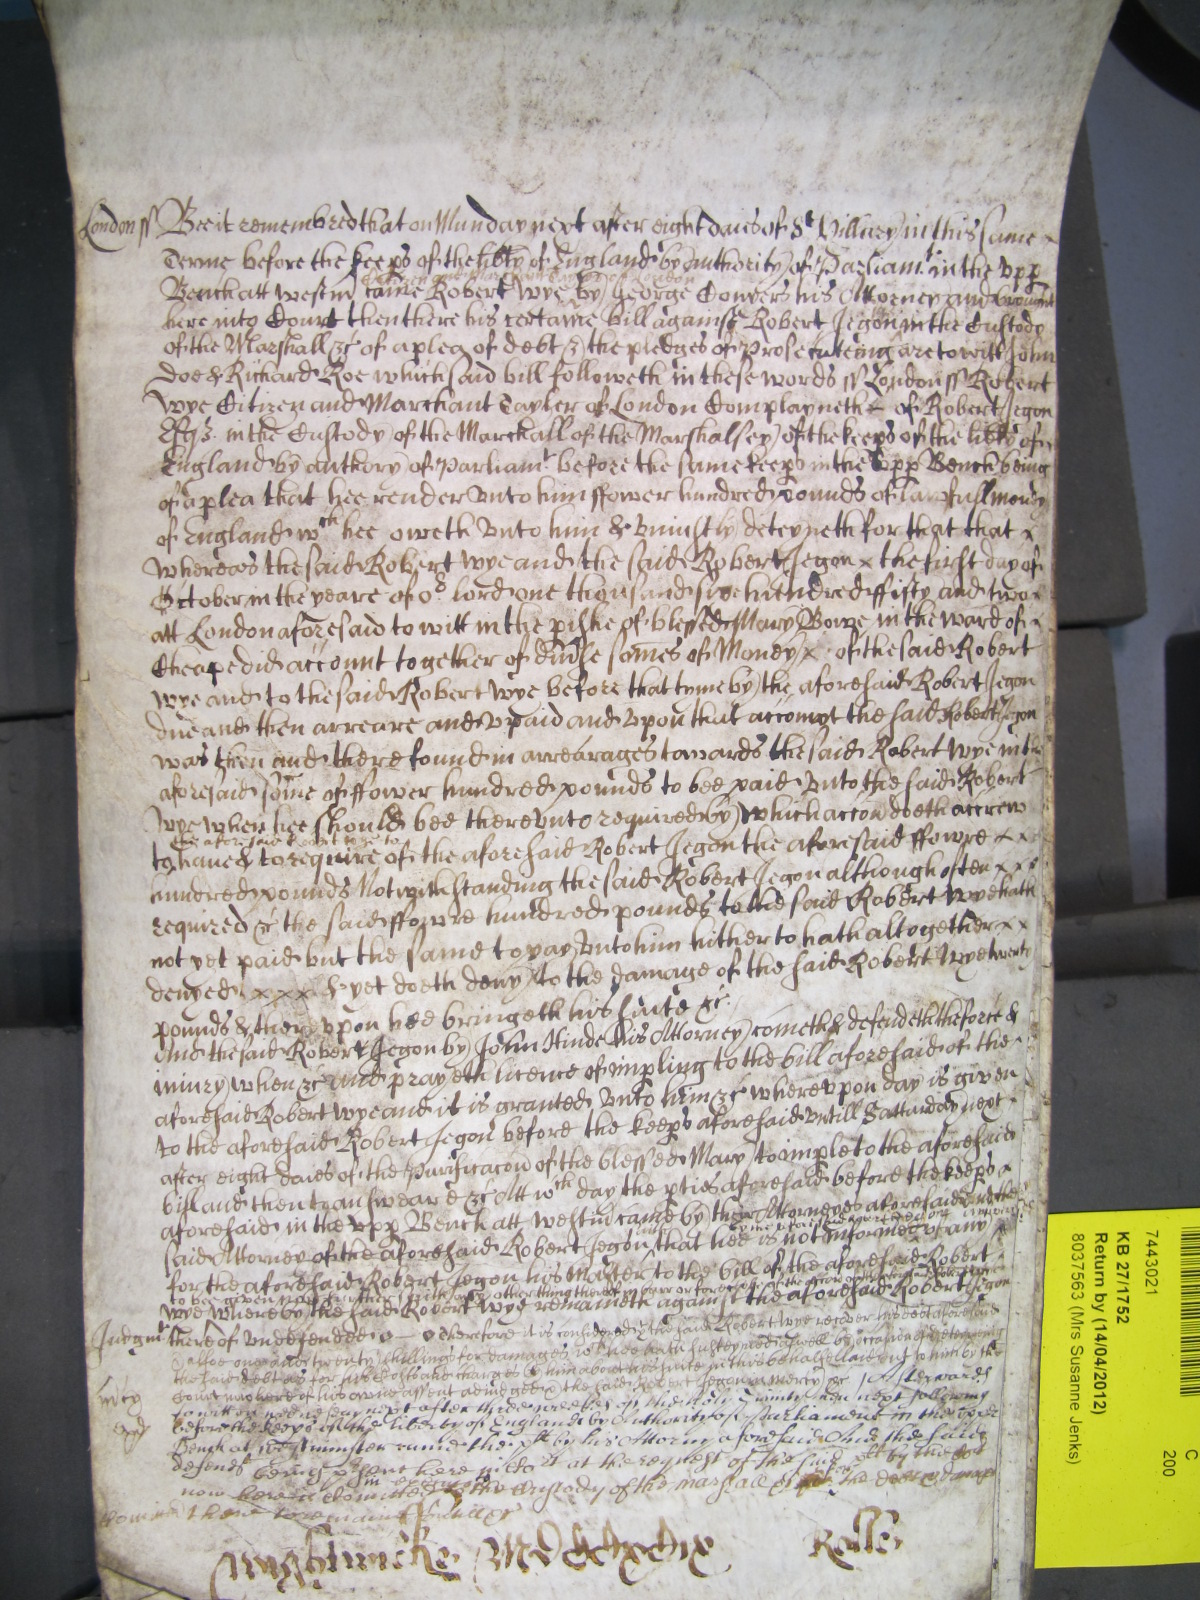 London ss Bee it remembred that on Munday next after eight daies of St Hillary in this same
Terme before the keeps of the libty of England by authority of Parliamt in the upp
Bench att Westm came Robert Wye by George Conyers his Attorney and brought
here into Court then there his certaine bill against Robert Jegon in the Custody
of the Marshall &c of a plea of debt & the pledges of Prosecuteing are to witt John
Doe & Richard Roe which said bill followeth in these words ss London ss Robert
Wye Citizen and Marchant Tayler of London Complayneth of Robert Jegon
Esqr in the Custody of the Marshall of the Marshalsey of the keeps of the libty of
England by authory of Parliamt before the same keeps in the Upp Bench being
of a plea that hee render unto him ffower hundred pounds of lawfull money
of England wch hee oweth unto him & uniustly deteyneth for that that
whereas the said Robert Wye and the said Robert Jegon the first day of
October in the yeare of or lord one thousand six hundred fifty and two
att London aforesaid to witt in the pishe of blessed Mary Bowe in the ward of
Cheape did account together of divse somes of Money of the said Robert
Wye and to the said Robert Wye before that tyme by the aforesaid Robert Jegon
due and then arreare and unpaid and upon that accompt the said Robert Jegon
was then and there found in arrearages towards the said Robert Wye in the
aforesaid some of ffower hundred pounds to bee paid unto the said Robert
Wye when hee should bee thereunto required by which accon doeth accrew
to have & to require of the aforesaid Robert Jegon the aforesaid ffowre
hundred pounds Notwithstanding the said Robert Jegon although often
required &c the said ffowre hundred pounds to the said Robert Wye hath
not yet paid but the same to pay unto him hitherto hath altogether
denyed & yet doeth deny to the damage of the said Robert Wye twenty
pounds & thereupon hee bringeth his suite &c
And the said Robert Jegon by John Hinde his Attorney cometh & defendeth the force &
iniury when &c and prayeth licence of impling to the bill aforesaid of the
aforesaid Robert Wye and it is granted unto him &c whereupon day is given
to the aforesaid Robert Jegon before the keeps aforesaid untill Satturday next
after eight daies of the Purificacon of the blessed Mary to imple to the aforesaid
bill and then to answeare &c Att wch day the pties aforesaid before the keeps
aforesaid in the upp Bench att Westm came by their Attorneyes aforesaid and the
said Attorney of the aforesaid Robert Jegon that hee is not informed of any
for the aforesaid Robert Jegon his Master to the bill of the aforesaid Robert
to bee given
Wye whereby the said Robert Wye remaineth against the aforesaid Robert Jegon
Judgmt thereof undefended Therefore it is considered that the said Robert Wye recover his debt aforesaid
and twenty shillings for damages wch hee hath susteyned aswell by occasion of deteyning
the said debt as for his costs and charges by him about his suite in this behalf laid out to him by the
Court here of his owne assent adiudged & the said Robert Jegon in mercy &c Afterwards
next after three weekes of the holy Trinity then next following
before the keeps of the liberty of England by Authority of Parliament in the upper
Bench at Westminster came the plt by his Attorny aforesaid And the said
defendt being psent here in Court at the request of the said plt by the Court
now here is Comitted to the Custody of the marshall
there to remaine untill &c
Mcclxxix Rolle
7443021
KB 27/1752
Return by (14/04/2012)
8037563 (Mrs Susanne Jenks)
C
200